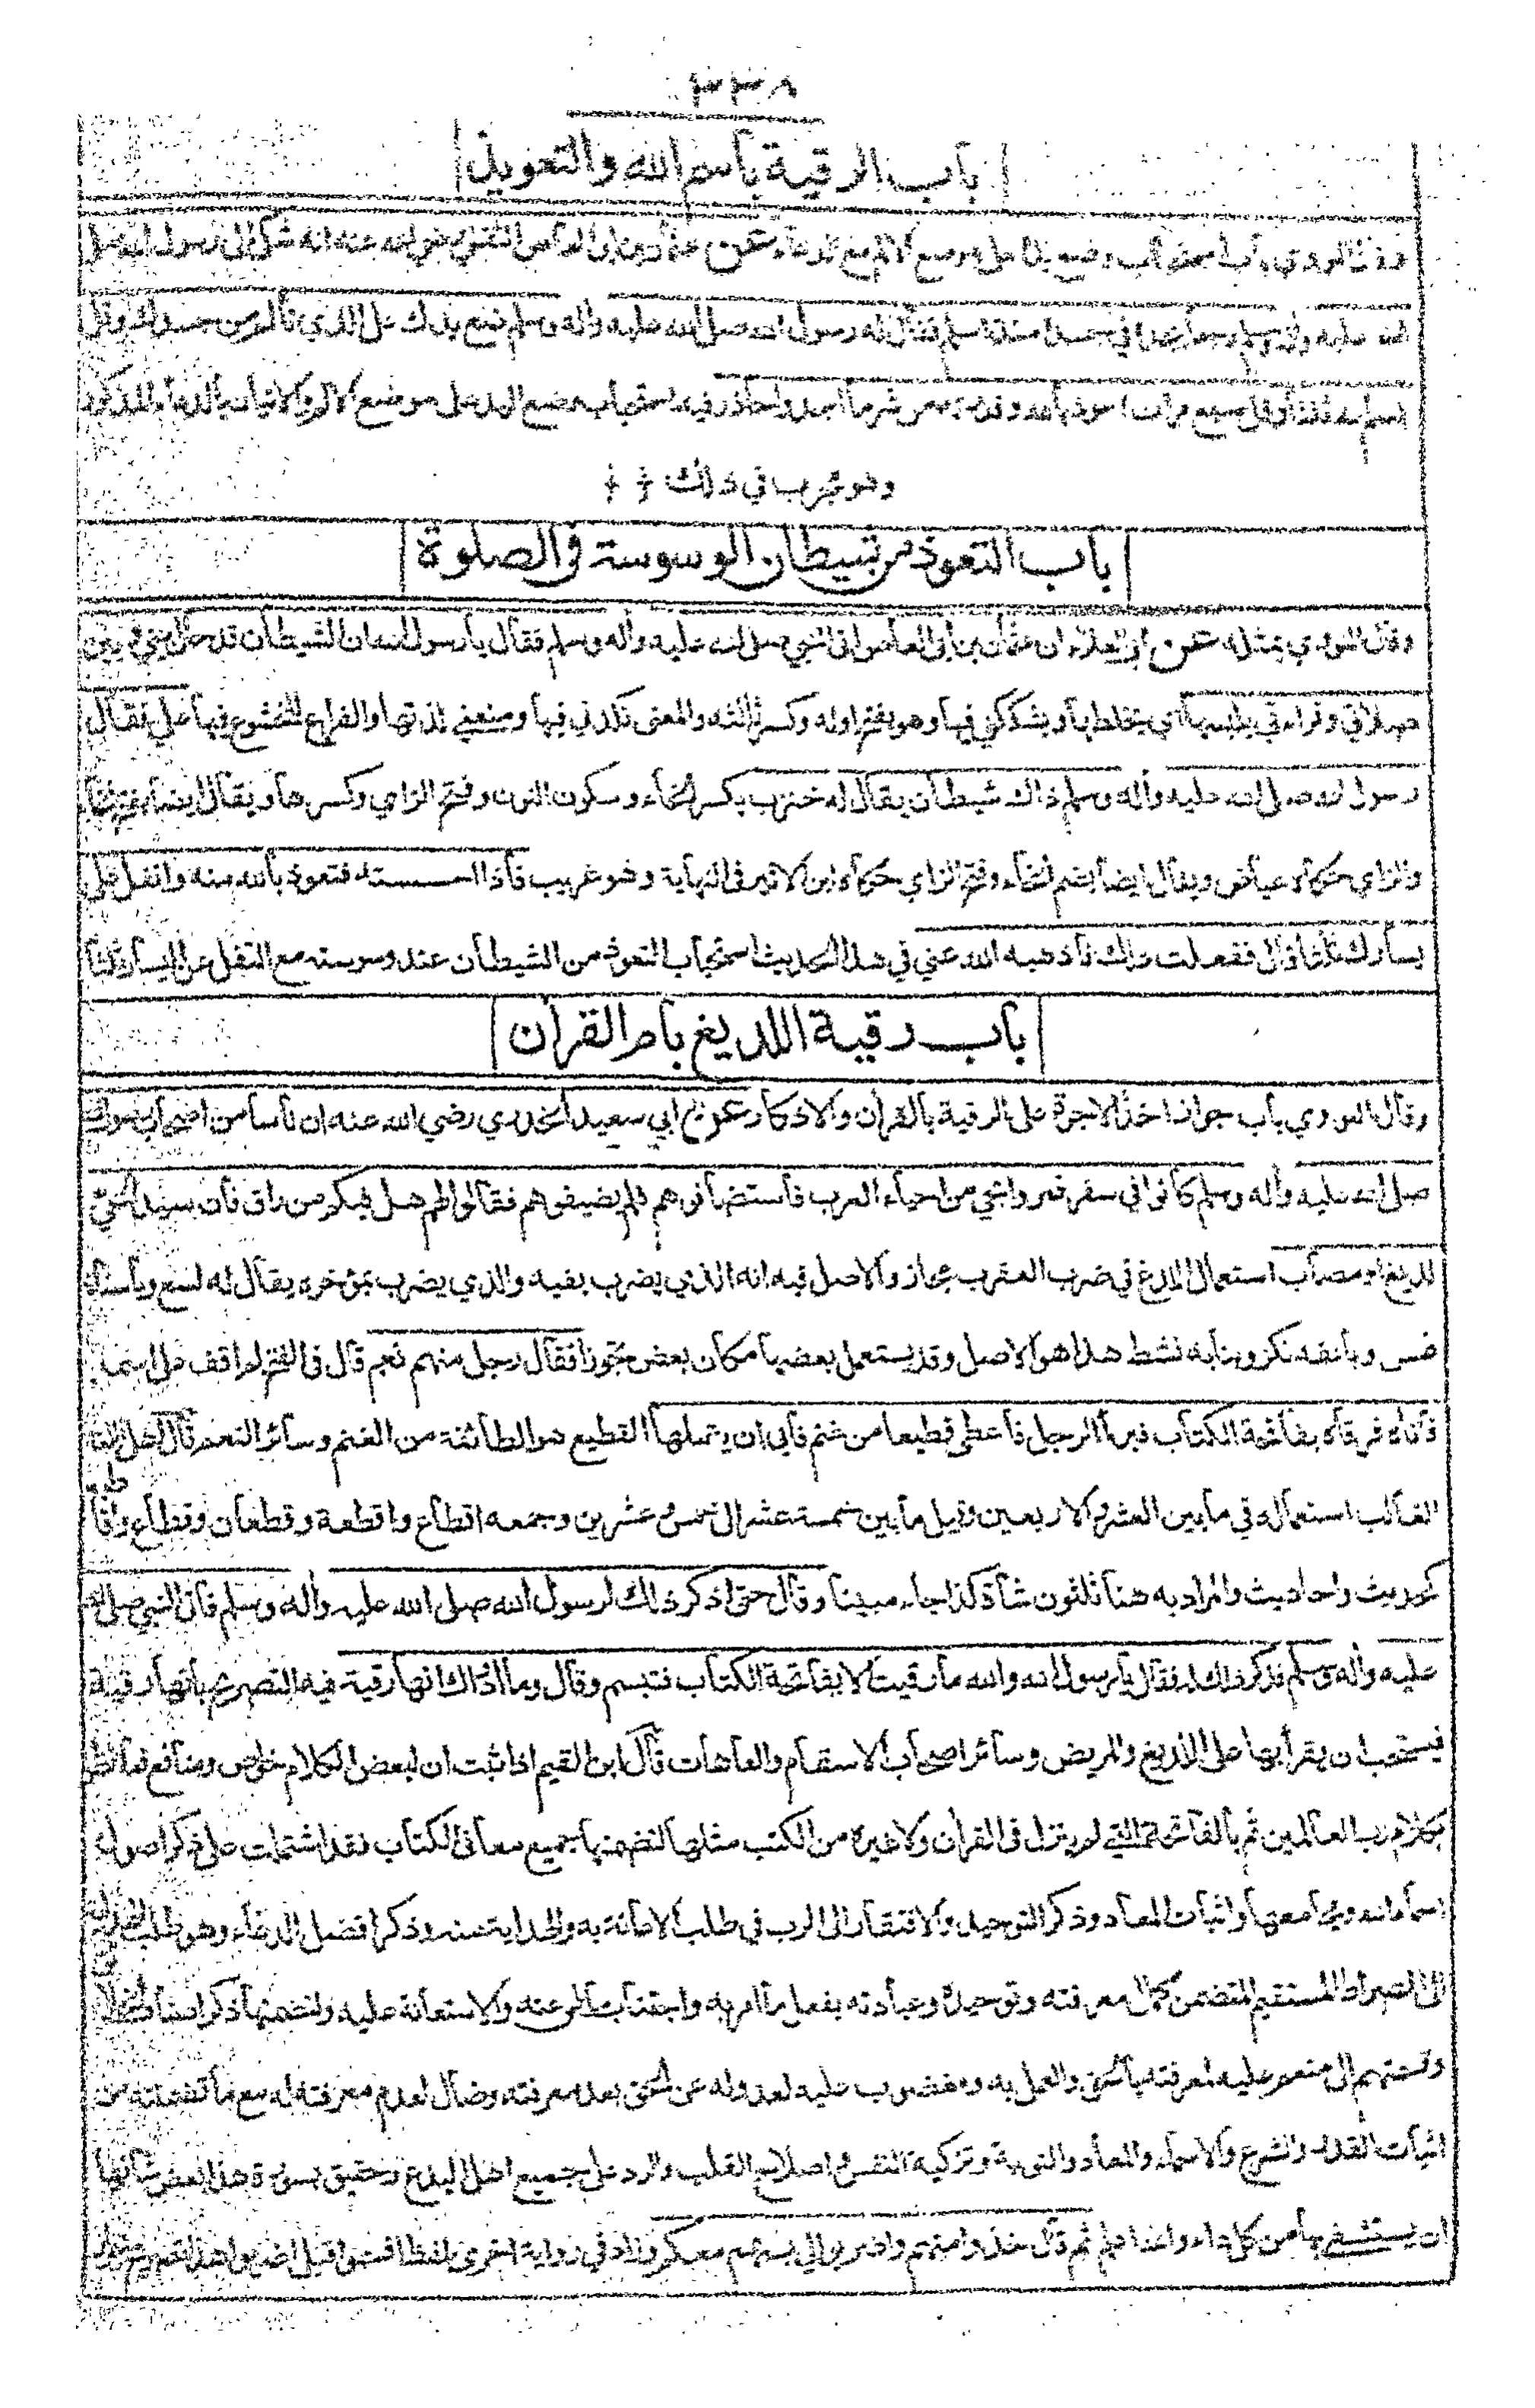 ٣٣٨
باب الرقية باسم الله والتعويذ
وقال النووي باب استحباب وضع يده على موضع الالم مع الدعاء عن عثمان بن ابي العاص الثقفي رضي الله عنه انه شكى الى رسول الله صلى
الله عليه واله وسلم وجعا يجده في جسده منذ اسلم فقال له رسول الله صلى الله عليه واله وسلم ضع يدك على الذي تألم من جسدك وقل
بسم الله ثلثا وقل سبع مرات اعوذ بالله وقدرته من شر ما اجد واحاذر فيه استحباب وضع اليد على موضع الالم والاتيان بالدعاء المذكور
وهو مجرب في ذلك
باب التعوذ من شيطان الوسوسة في الصلوة
وقال النووي بمثله عن ابي العلاء ان عثمان بن ابي العاص اتى النبي صلى الله عليه واله وسلم فقال يا رسول الله ان الشيطان قد حال بيني وبين
صلاتي وقراءتي يلبسها اي يخلطها ويشككني فيها وهو بفتح اوله وكسر ثالثه والمعنى نكدني فيها ومنعني لذتها والفراغ للخشوع فيها علي فقال
رسول الله صلى الله عليه واله وسلم ذاك شيطان يقال له خنزب بكسر الخاء وسكون النون وفتح الزاي وكسرها ويقال ايضا بفتح الخاء
والزاي حكاه عياض ويقال ايضا بضم الخاء وفتح الزاي حكاه ابن الاثير في النهاية وهو غريب فاذا احسسته فتعوذ بالله منه واتفل على
يسارك ثلثا قال ففعلت ذلك فاذهبه الله عني في هذا الحديث استحباب التعوذ من الشيطان عند وسوسته مع التفل عن اليسار ثلثا
باب رقية اللديغ بام القران
وقال النووي باب جواز اخذ الاجرة على الرقية بالقران والاذكار عن ابي سعيد الخدري رضي الله عنه ان ناسا من اصحاب رسول
صلى الله عليه واله وسلم كانوا في سفر فمروا بحي من احياء العرب فاستضافوهم فلم يضيفوهم فقالوا لهم هل فيكم من راق فان سيد الحي
لديغ او مصاب استعمال اللدغ في ضرب العقرب مجاز والاصل فيه انه الذي يضرب بفيه والذي يضرب بمؤخره يقال له لسع وباسنانه
نهس وبانفه نكز وبنابه نشط هذا هو الاصل وقد يستعمل بعضها مكان بعض تجوزا فقال رجل منهم نعم قال في الفتح لم اقف على اسمه
فاتاه فرقاه بفاتحة الكتاب فبرأ الرجل فاعطي قطيعا من غنم فابى ان يقبلها القطيع هو الطائفة من الغنم وسائر النعم قال اهل اللغة
الغالب استعماله في ما بين العشر والاربعين وقيل ما بين خمسة عشر الى خمس وعشرين وجمعه اقطاع واقطعة وقطعان وقطاع واقاطيع
كحديث واحاديث والمراد به هنا ثلثون شاة كذا جاء مبينا وقال حتى اذكر ذلك لرسول الله صلى الله عليه واله وسلم فاتى النبي صلى الله
عليه واله وسلم فذكر ذلك له فقال يا رسول الله والله ما رقيت الا بفاتحة الكتاب فتبسم وقال وما ادراك انها رقية فيه التصريح بانها رقية
فيستحب ان يقرأ بها على اللديغ والمريض وسائر اصحاب الاسقام والعاهات قال ابن القيم اذا ثبت ان لبعض الكلام خواص ومنافع فما الظن
بكلام رب العالمين ثم بالفاتحة التي لم ينزل في القران ولا غيره من الكتب مثلها لتضمنها جميع معاني الكتاب فقد اشتملت على ذكر اصول
اسماء الله ومجامعها واثبات المعاد وذكر التوحيد والافتقار الى الرب في طلب الاعانة به والهداية منه وذكر افضل الدعاء وهو طلب الهداية
الى الصراط المستقيم المتضمن كمال معرفته وتوحيده وعبادته بفعل ما امر به واجتناب ما نهى عنه والاستقامة عليه ولتضمنها ذكر اصناف الخلائق
وقسمتهم الى منعم عليه لمعرفته بالحق والعمل به ومغضوب عليه لعدوله عن الحق بعد معرفته وضال لعدم معرفته له مع ما تضمنته من
اثبات القدر والشرع والاسماء والمعاد والتوبة وتزكية النفس واصلاح القلب والرد على جميع اهل البدع وحقيق بسورة هذا بعض شأنها
ان يستشفى بها من كل داء والله اعلم ثم قال خذوا منهم واضربوا لي بسهم معكم وزاد في رواية اخرى بلفظ اقسموا